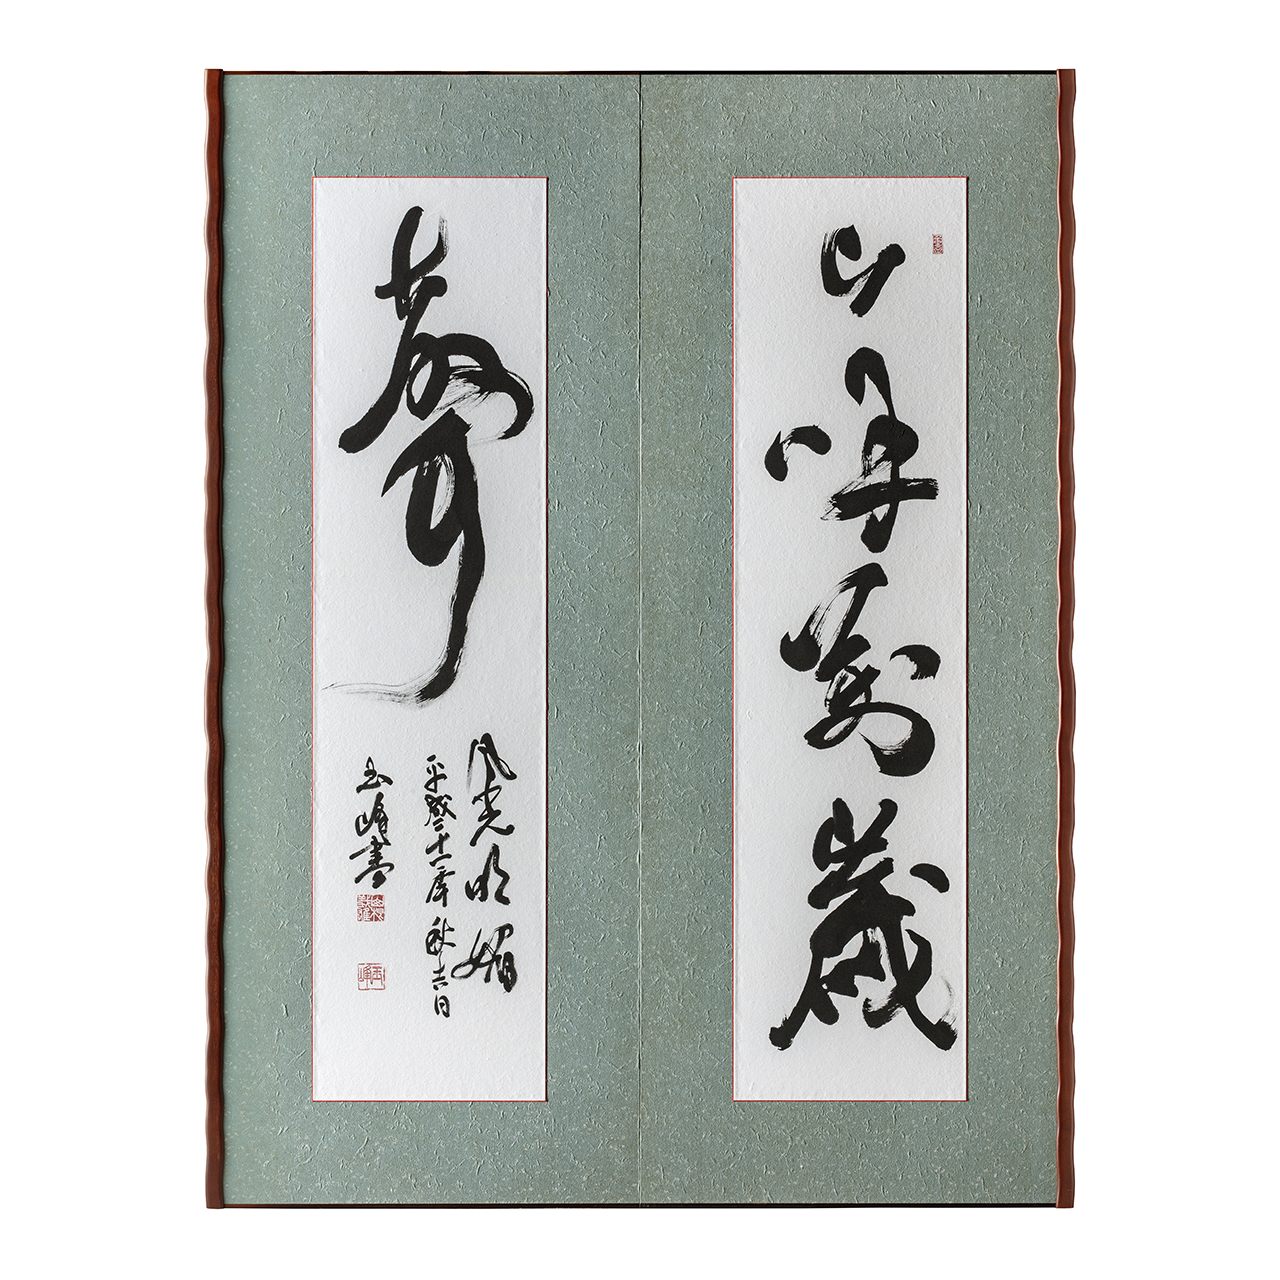 山呼萬歳
聲
風光明媚
平成二十一年秋吉月
玉峰書